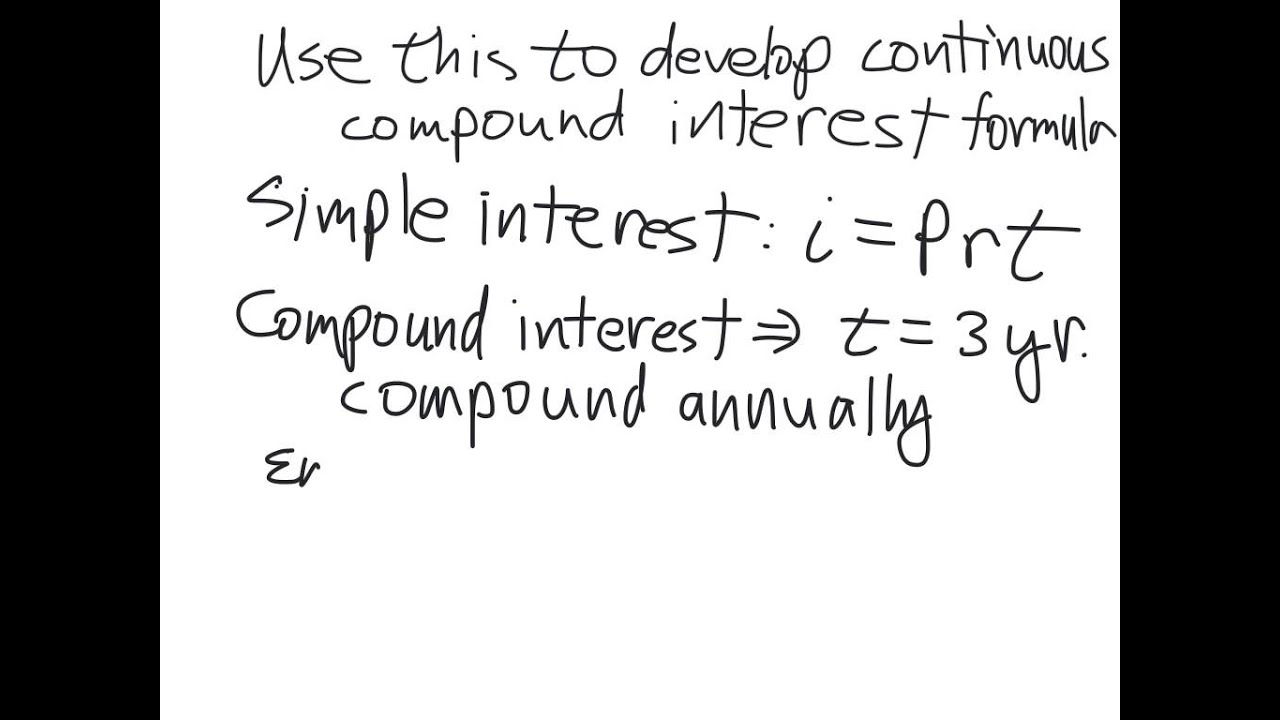 Use this to develop continuous
compound interest formula
Simple interest: i = Prt
Compound interest ⇒ t = 3 yr.
compound annually
En